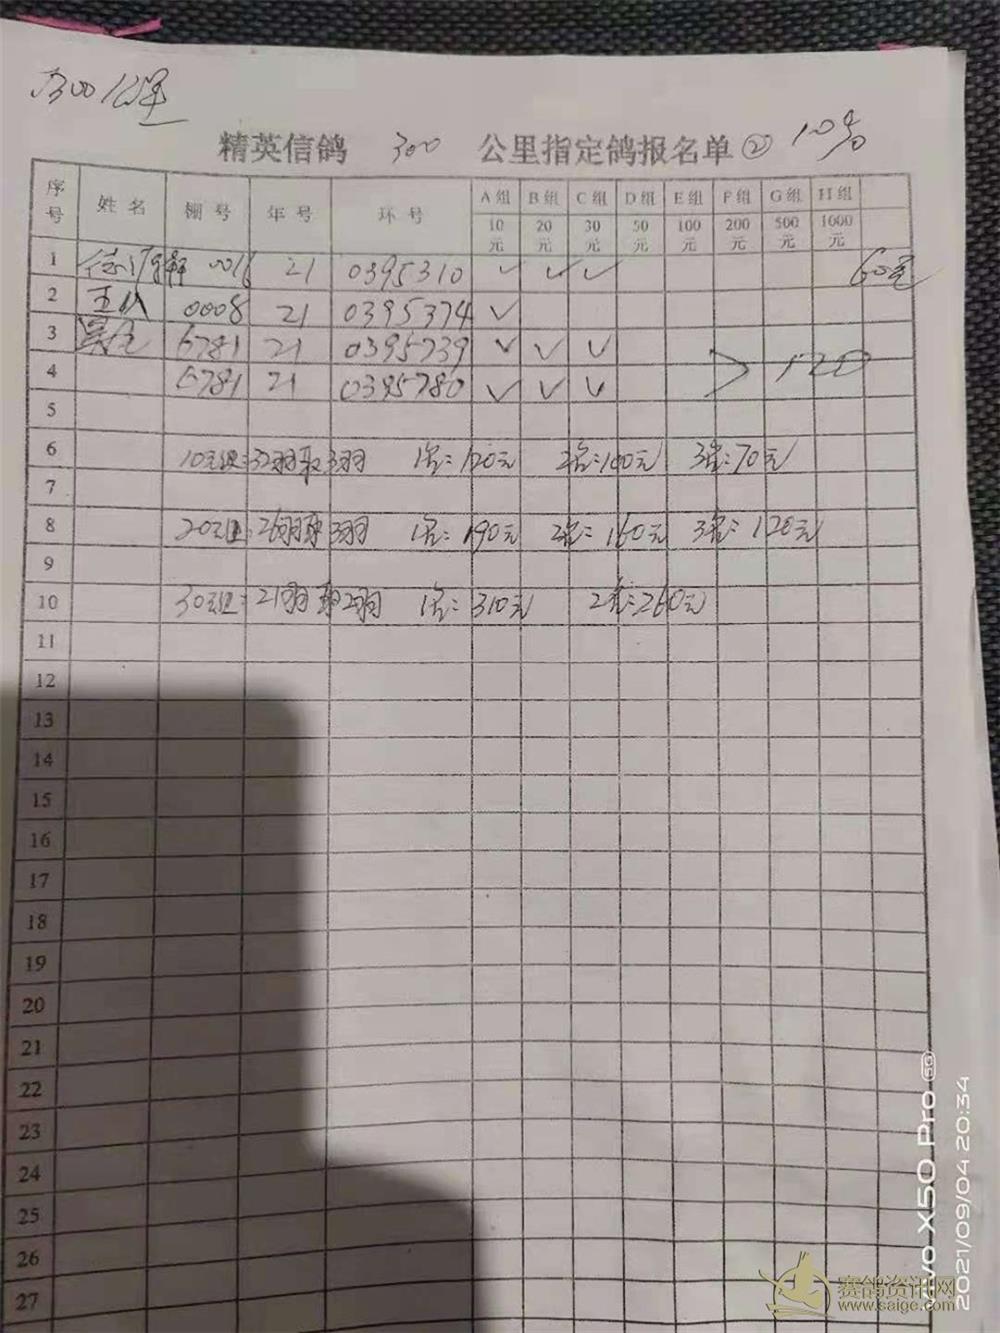 300公里
精英信鸽 300 公里指定鸽报名单② 10%
序号 姓名 棚号 年号 环号 A组 B组 C组 D组 E组 F组 G组 H组
10元 20元 30元 50元 100元 200元 500元 1000元
1 0016 21 0395310 ✓ ✓ ✓ 60元
2 王队 0008 21 0395374 ✓
3 6781 21 0395739 ✓ ✓ ✓
4 6781 21 0395780 ✓ ✓ ✓ 120
5
6 10元组:32羽取3羽 1名:120元 2名:100元 3名:70元
7
8 20元组:26羽取3羽 1名:190元 2名:160元 3名:120元
9
10 30元组:21羽取2羽 1名:310元 2名:260元
11
12
13
14
15
16
17
18
19
20
21
22
23
24
25
26
27
vivo X50 Pro 5G
2021/09/04 20:34
赛鸽资讯网
www.saige.com